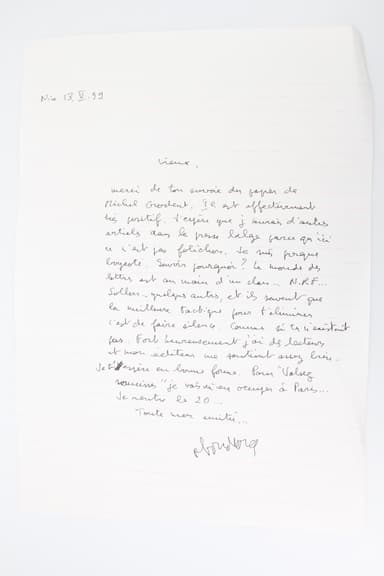 Nice 18.V.99
Vieux,
merci de ton envoie du papier de
Michel Grodent. Il est effectivement
très positif. J'espère que j'aurais d'autres
articles dans la presse belge parce qu'ici
ce n'est pas folichon. Je suis presque
boycoté. Savoir pourquoi? Le monde des
lettres est au main d'un clan... N.R.F...
Sollers.. quelques autres, et ils savent que
la meilleure tactique pour t'éliminer
c'est de faire silence. Comme si tu n'existait
pas. Fort heureusement j'ai des lecteurs
et mon editeur me soutient assez bien.
Je t'espère en bonne forme. Pour "Valse
" je vais m'en occuper à Paris...
Je rentre le 20...
Toute mes amitié...